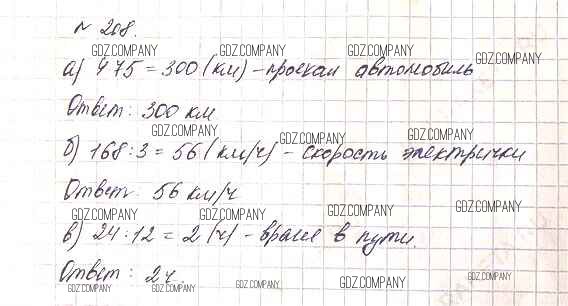 № 268.
GDZ.COMPANY GDZ.COMPANY GDZ.COMPANY GDZ.COMPANY
а) 4 75 = 300 (км) - проехал автомобиль
Ответ: 300 км
GDZ.COMPANY GDZ.COMPANY GDZ.COMPANY
б) 168 : 3 = 56 (км/ч) - скорость электрички
Ответ: 56 км/ч
GDZ.COMPANY GDZ.COMPANY GDZ.COMPANY GDZ.COMPANY
в) 24 : 12 = 2 (ч) - время в пути.
Ответ: 2ч.
GDZ.COMPANY GDZ.COMPANY GDZ.COMPANY GDZ.COMPANY GDZ.COMPANY